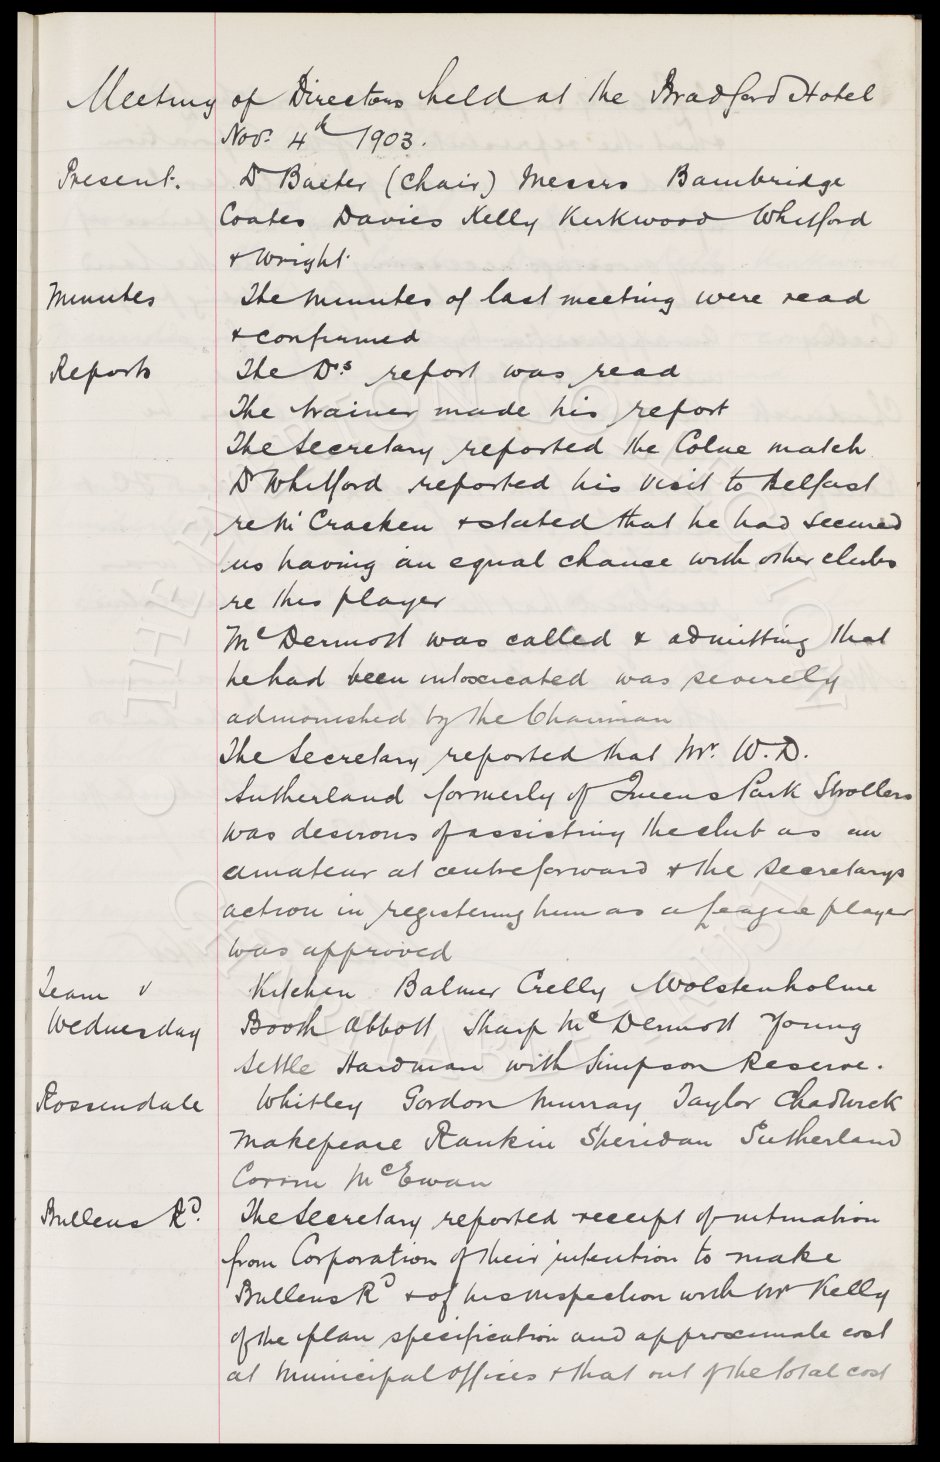 Meeting of Directors held at the Bradford Hotel
Nov. 4th 1903.
Present. Dr Baxter (chair) Messrs Bainbridge
Coates Davies Kelly Kirkwood Whitford
& Wright.
Minutes The Minutes of last meeting were read
& confirmed
Reports The Drs report was read
The trainer made his report
The Secretary reported the Colne match
Dr Whitford reported his visit to Belfast
re McCracken & stated that he had secured
us having an equal chance with other clubs
re this player
McDermott was called & admitting that
he had been intoxicated was severely
admonished by the Chairman
The Secretary reported that Mr. W. D.
Sutherland formerly of Queens Park Strollers
was desirous of assisting the club as an
amateur at centreforward & the Secretarys
action in registering him as a League player
was approved
Team v Kitchen Balmer Crelly Wolstenholme
Wednesday Booth Abbott Sharp McDermott Young
Settle Hardman with Simpson Reserve.
Rossendale Whitley Gordon Murray Taylor Chadwick
Makepeace Rankin Sheridan Sutherland
Corrin McEwan
Bullens Rd. The Secretary reported receipt of intimation
from Corporation of their intention to make
Bullens Rd & of his inspection with Mr Kelly
of the plan specification and approximate cost
at Municipal Offices & that out of the total cost